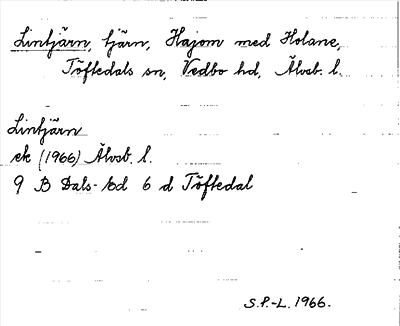 Lintjärn, tjärn, Hajom med Holane,
Töftedals sn, Vedbo hd, Älvsb. l.
Lintjärn
ek (1966) Älvsb. l.
9 B Dals-Ed 6 d Töftedal
S.P.-L. 1966.